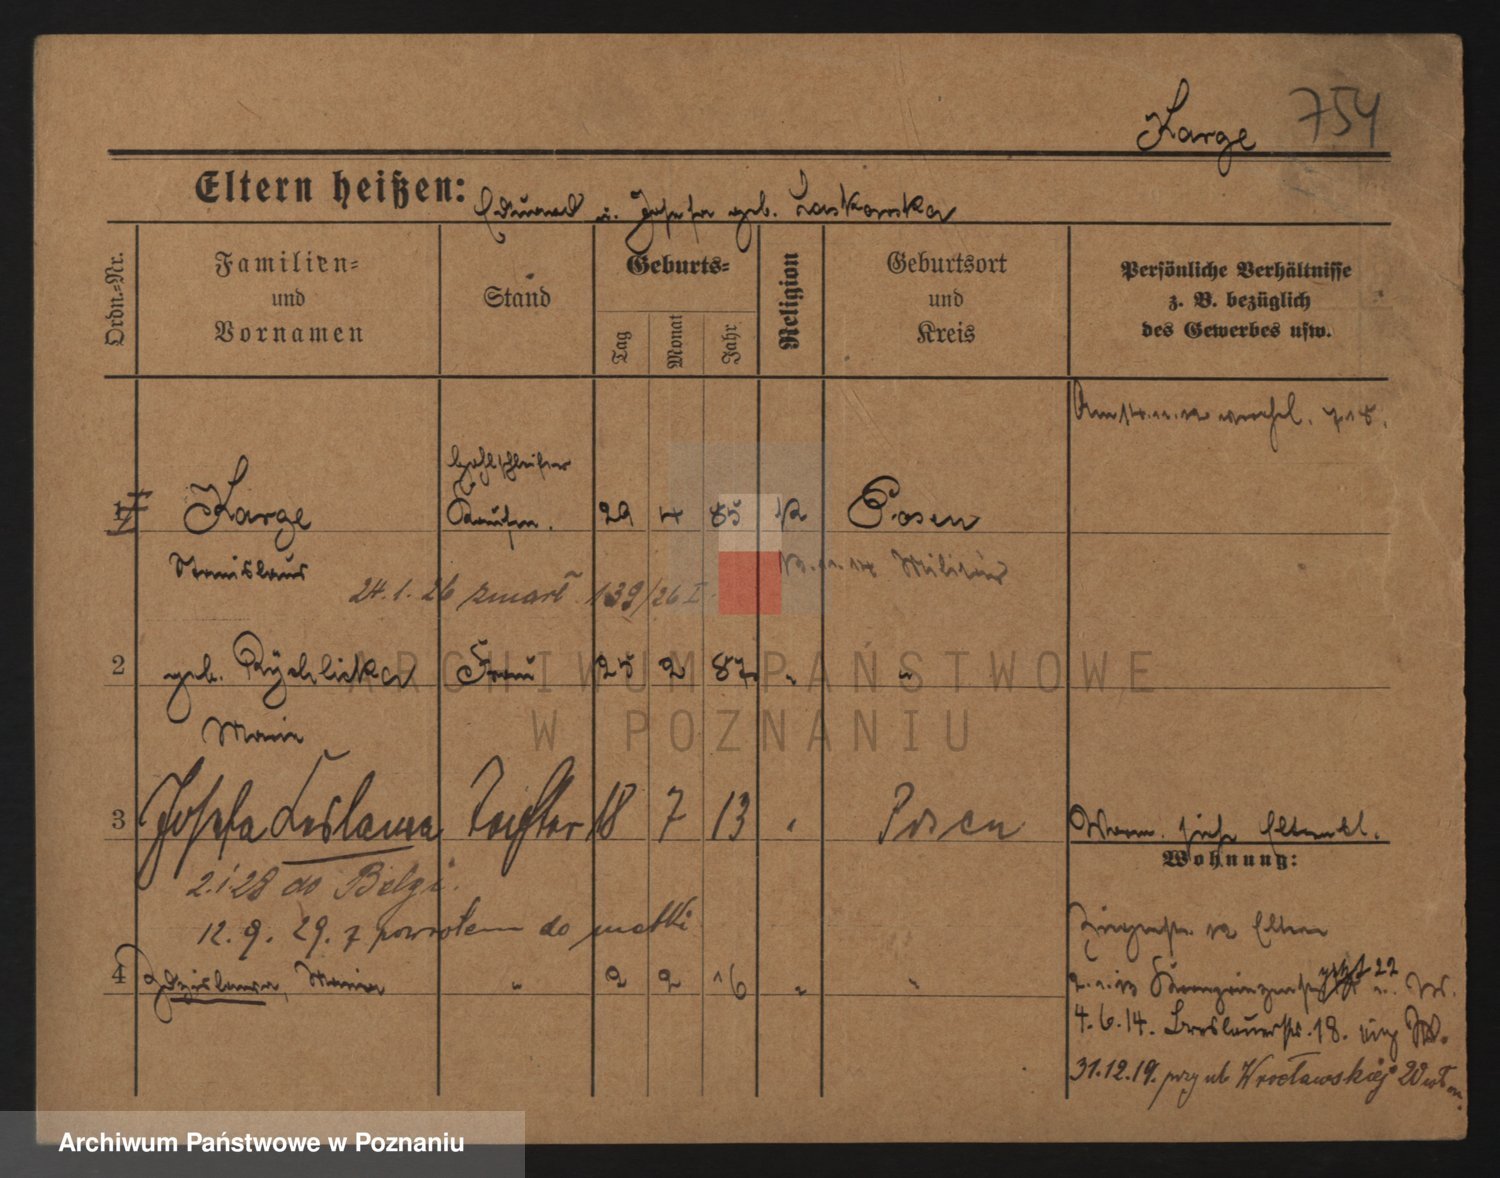 Karge 754
Eltern heißen: Eduard u. Josefa geb. Laskowska
Ordn.-Nr.
Familien-
und
Vornamen
Stand
Geburts-
Tag
Monat
Jahr
Religion
Geburtsort
und
Kreis
Persönliche Verhältnisse
z. B. bezüglich
des Gewerbes usw.
Hohlschleifer
1 Karge Kaufm. 29 4 85 k Posen
Stanislaus Militär
24.1.26 zmarł 139/26 I
2 geb. Rychlicka Frau 25 2 87 "
Marie
3 Josefa Lesława Tochter 18 7 13 " Posen Elternbl.
Wohnung:
2.1.28 do Belgi.
12.9.29. z powrotem do matki
Eltern
4 Zdzisława, Maria " 2 2 16 " "
Kronprinzenstr. jetzt 22
4.6.14. Breslauerstr. 18.
31.12.19. przy ul. Wrocławskiej 20
ARCHIWUM PAŃSTWOWE
W POZNANIU
Archiwum Państwowe w Poznaniu